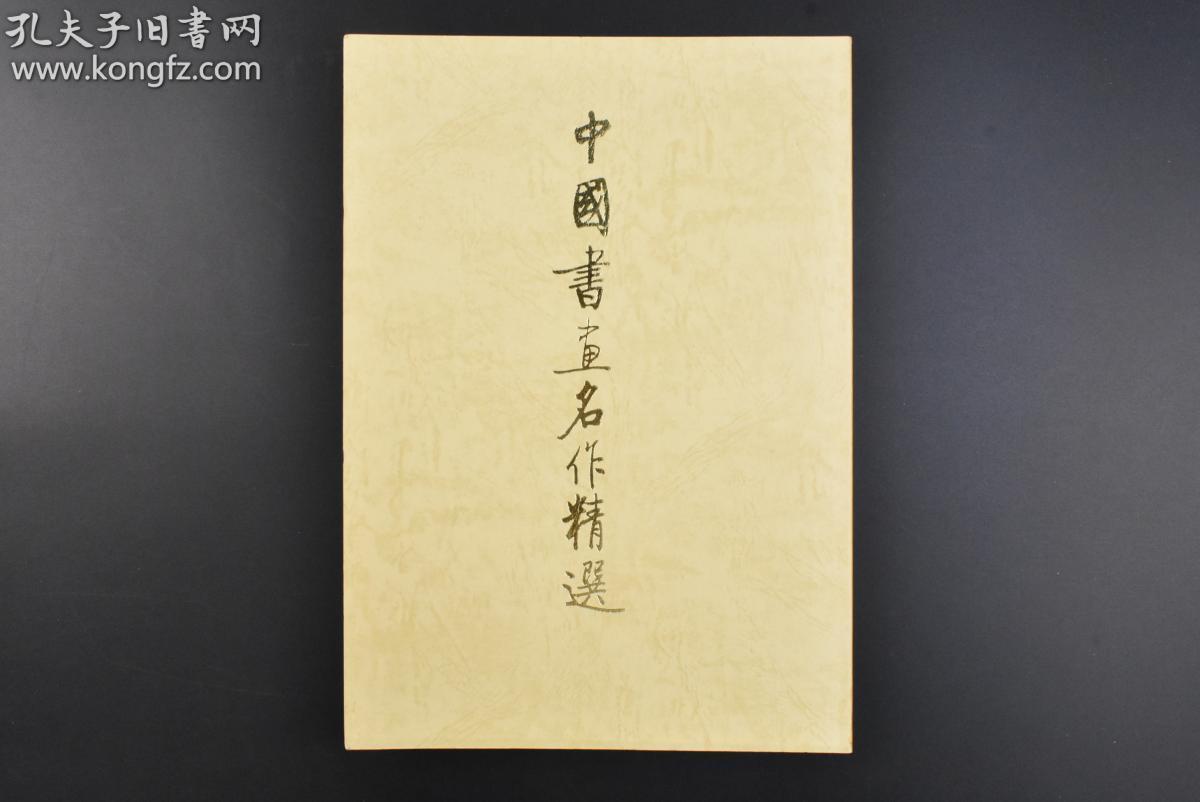 孔夫子旧書网
www.kongfz.com
中國書畫名作精選